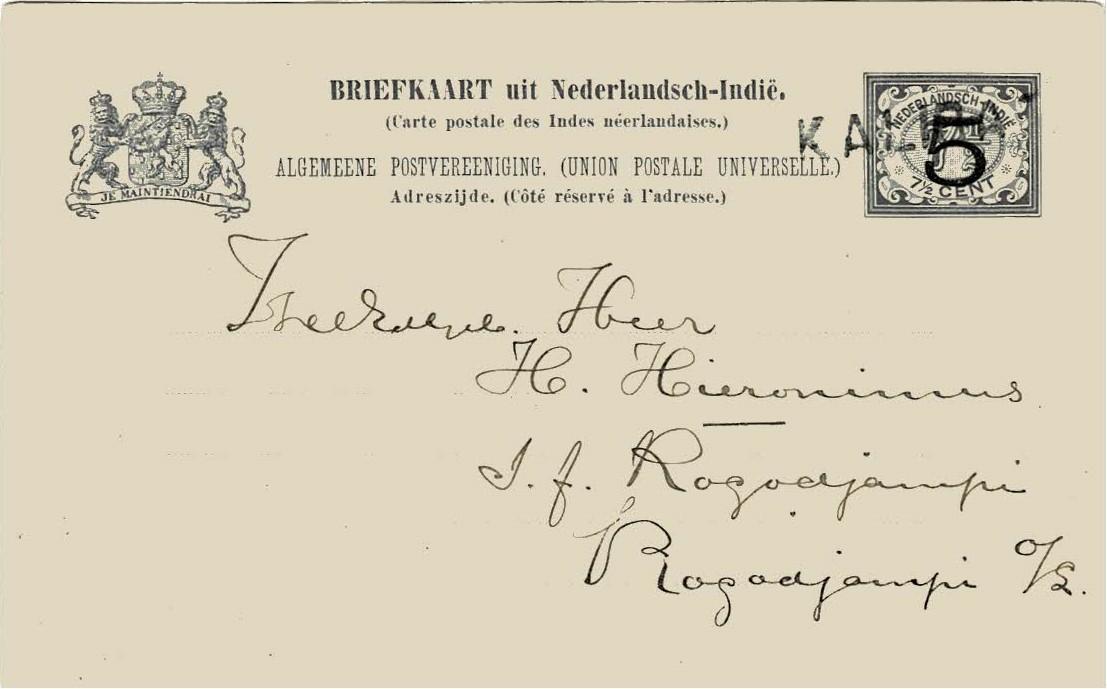 BRIEFKAART uit Nederlandsch-Indië.
(Carte postale des Indes néerlandaises.)
ALGEMEENE POSTVEREENIGING. (UNION POSTALE UNIVERSELLE.)
Adreszijde. (Côté réservé à l'adresse.)
JE MAINTIENDRAI
NEDERLANDSCH-INDIË
5
7½ CENT
Heer
H. Hieronimus
S. f. Rogodjampi
Rogodjampi